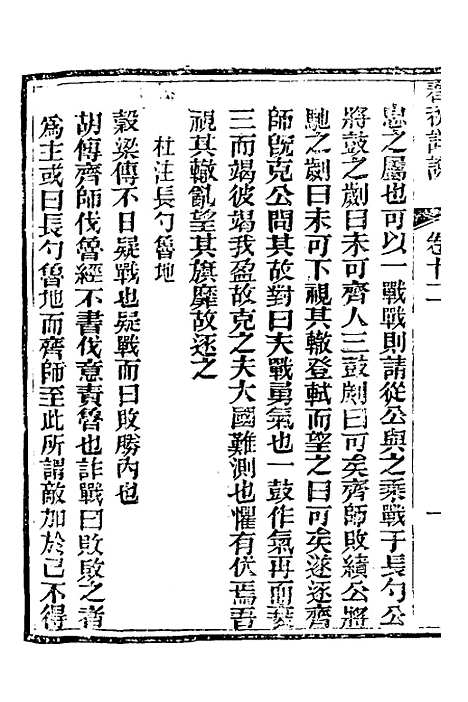 春秋詳說
卷十二
一
忠之屬也可以一戰戰則請從公與之乘戰于長勺公
將鼓之劌曰未可齊人三鼓劌曰可矣齊師敗績公將
馳之劌曰未可下視其轍登軾而望之曰可矣遂逐齊
師旣克公問其故對曰夫戰勇氣也一鼓作氣再而衰
三而竭彼竭我盈故克之夫大國難測也懼有伏焉吾
視其轍亂望其旗靡故逐之
杜注長勺魯地
穀梁傳不日疑戰也疑戰而曰敗勝內也
胡傳齊師伐魯經不書伐意責魯也詐戰曰敗敗之者
爲主或曰長勺魯地而齊師至此所謂敵加於已不得